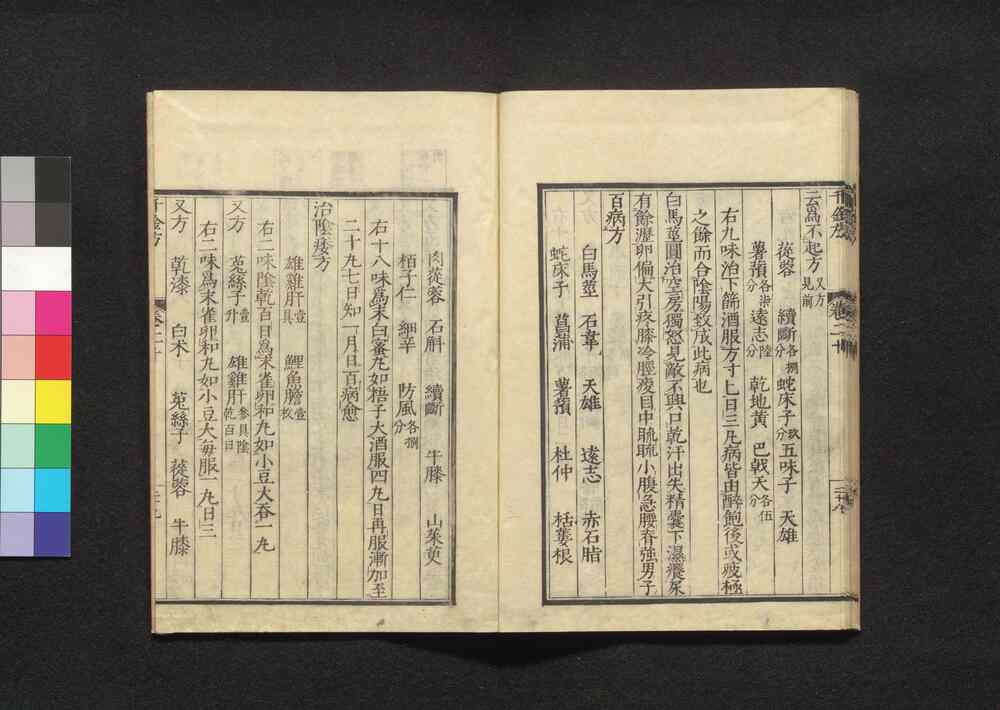 千金方
卷二十
云爲不起方 又方見前
蓯蓉 續斷各捌分 蛇床子玖分 五味子 天雄
薯蕷各柒分 遠志陸分 乾地黃 巴戟天各伍分
右九味治下篩酒服方寸匕日三凡病皆由醉飽後或疲極
之餘而合陰陽致成此病也
白馬莖圓治空房獨怒見敵不興口乾汗出失精囊下濕癢尿
有餘瀝卵偏大引疼膝冷脛痠目中䀮䀮小腹急腰脊強男子
百病方
白馬莖 石韋 天雄 遠志 赤石脂
蛇床子 菖蒲 薯蕷 杜仲 栝蔞根
肉蓯蓉 石斛 續斷 牛膝 山茱萸
栢子仁 細辛 防風各捌分
右十八味爲末白蜜丸如梧子大酒服四丸日再服漸加至
二十丸七日知一月日百病愈
治陰痿方
雄雞肝壹具 鯉魚膽壹枚
右二味陰乾百日爲末雀卵和丸如小豆大吞一丸
又方 菟絲子壹升 雄雞肝參具陰乾百日
右二味爲末雀卵和丸如小豆大每服一丸日三
又方 乾漆 白朮 菟絲子 蓯蓉 牛膝
千金方
卷二十